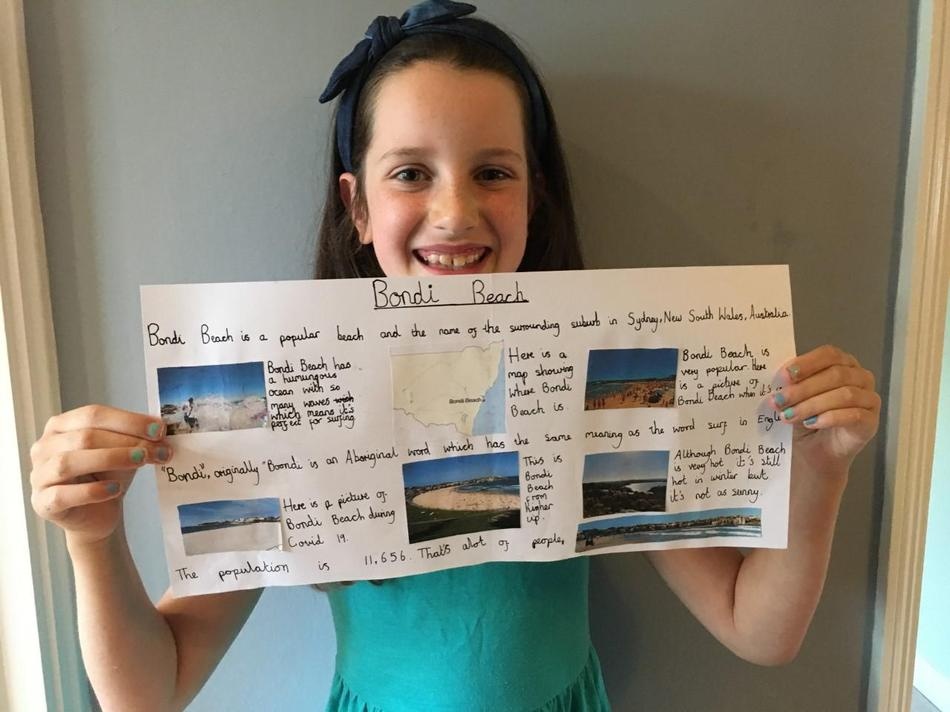 Bondi Beach
Bondi Beach is a popular beach and the name of the surrounding suburb in Sydney, New South Wales, Australia.
Bondi Beach has
a humungous
ocean with so
many waves
which means it's
perfect for surfing.
Bondi Beach
Here is a
map showing
where Bondi
Beach is.
Bondi Beach is
very popular. Here
is a picture of
Bondi Beach when it's
"Bondi", originally "Boondi is an Aboriginal word which has the same meaning as the word surf in
Here is a picture of
Bondi Beach during
Covid 19.
This is
Bondi
Beach
from
higher
up.
Although Bondi Beach
is very hot it's still
hot in winter but
it's not as sunny.
The population is 11,656. That's alot of people,